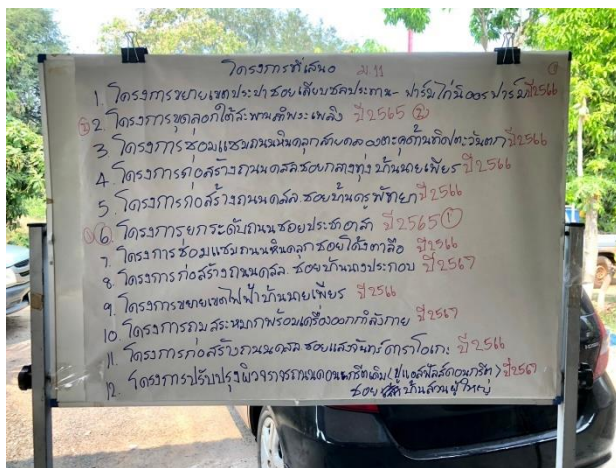 โครงการที่เสนอ ม.11
1. โครงการขยายเขตประปาซอยเลียบชลประทาน - ฟาร์มไก่นิออรฟาร์ม ปี2566
② 2. โครงการขุดลอกใต้สะพานลำพระเพลิง ปี2565 ②
3. โครงการซ่อมแซมถนนหินคลุกสายคลองตะคุด้านทิศตะวันตก ปี2566
4. โครงการก่อสร้างถนนคสล.ซอยกลางทุ่งบ้านนายเพียร ปี2566
5. โครงการก่อสร้างถนนคสล.ซอยบ้านครูพัทยา ปี2566
① 6. โครงการยกระดับถนนซอยประชาอาสา ปี2565 ①
7. โครงการซ่อมแซมถนนหินคลุกซอยโค้งตาลือ ปี2566
8. โครงการก่อสร้างถนนคสล. ซอยบ้านนางประกอบ ปี2567
9. โครงการขยายเขตไฟฟ้าบ้านนายเพียร ปี2566
10. โครงการถมสระหมากพร้อมเครื่องออกกำลังกาย ปี2567
11. โครงการก่อสร้างถนนคสล.ซอยแสงจันทร์คาราโอเกะ ปี2566
12. โครงการปรับปรุงผิวจราจรถนนคอนกรีตเดิม(ปูแอสฟัลส์คอนกรีต) ปี2567
ซอยบ้านสวนผู้ใหญ่